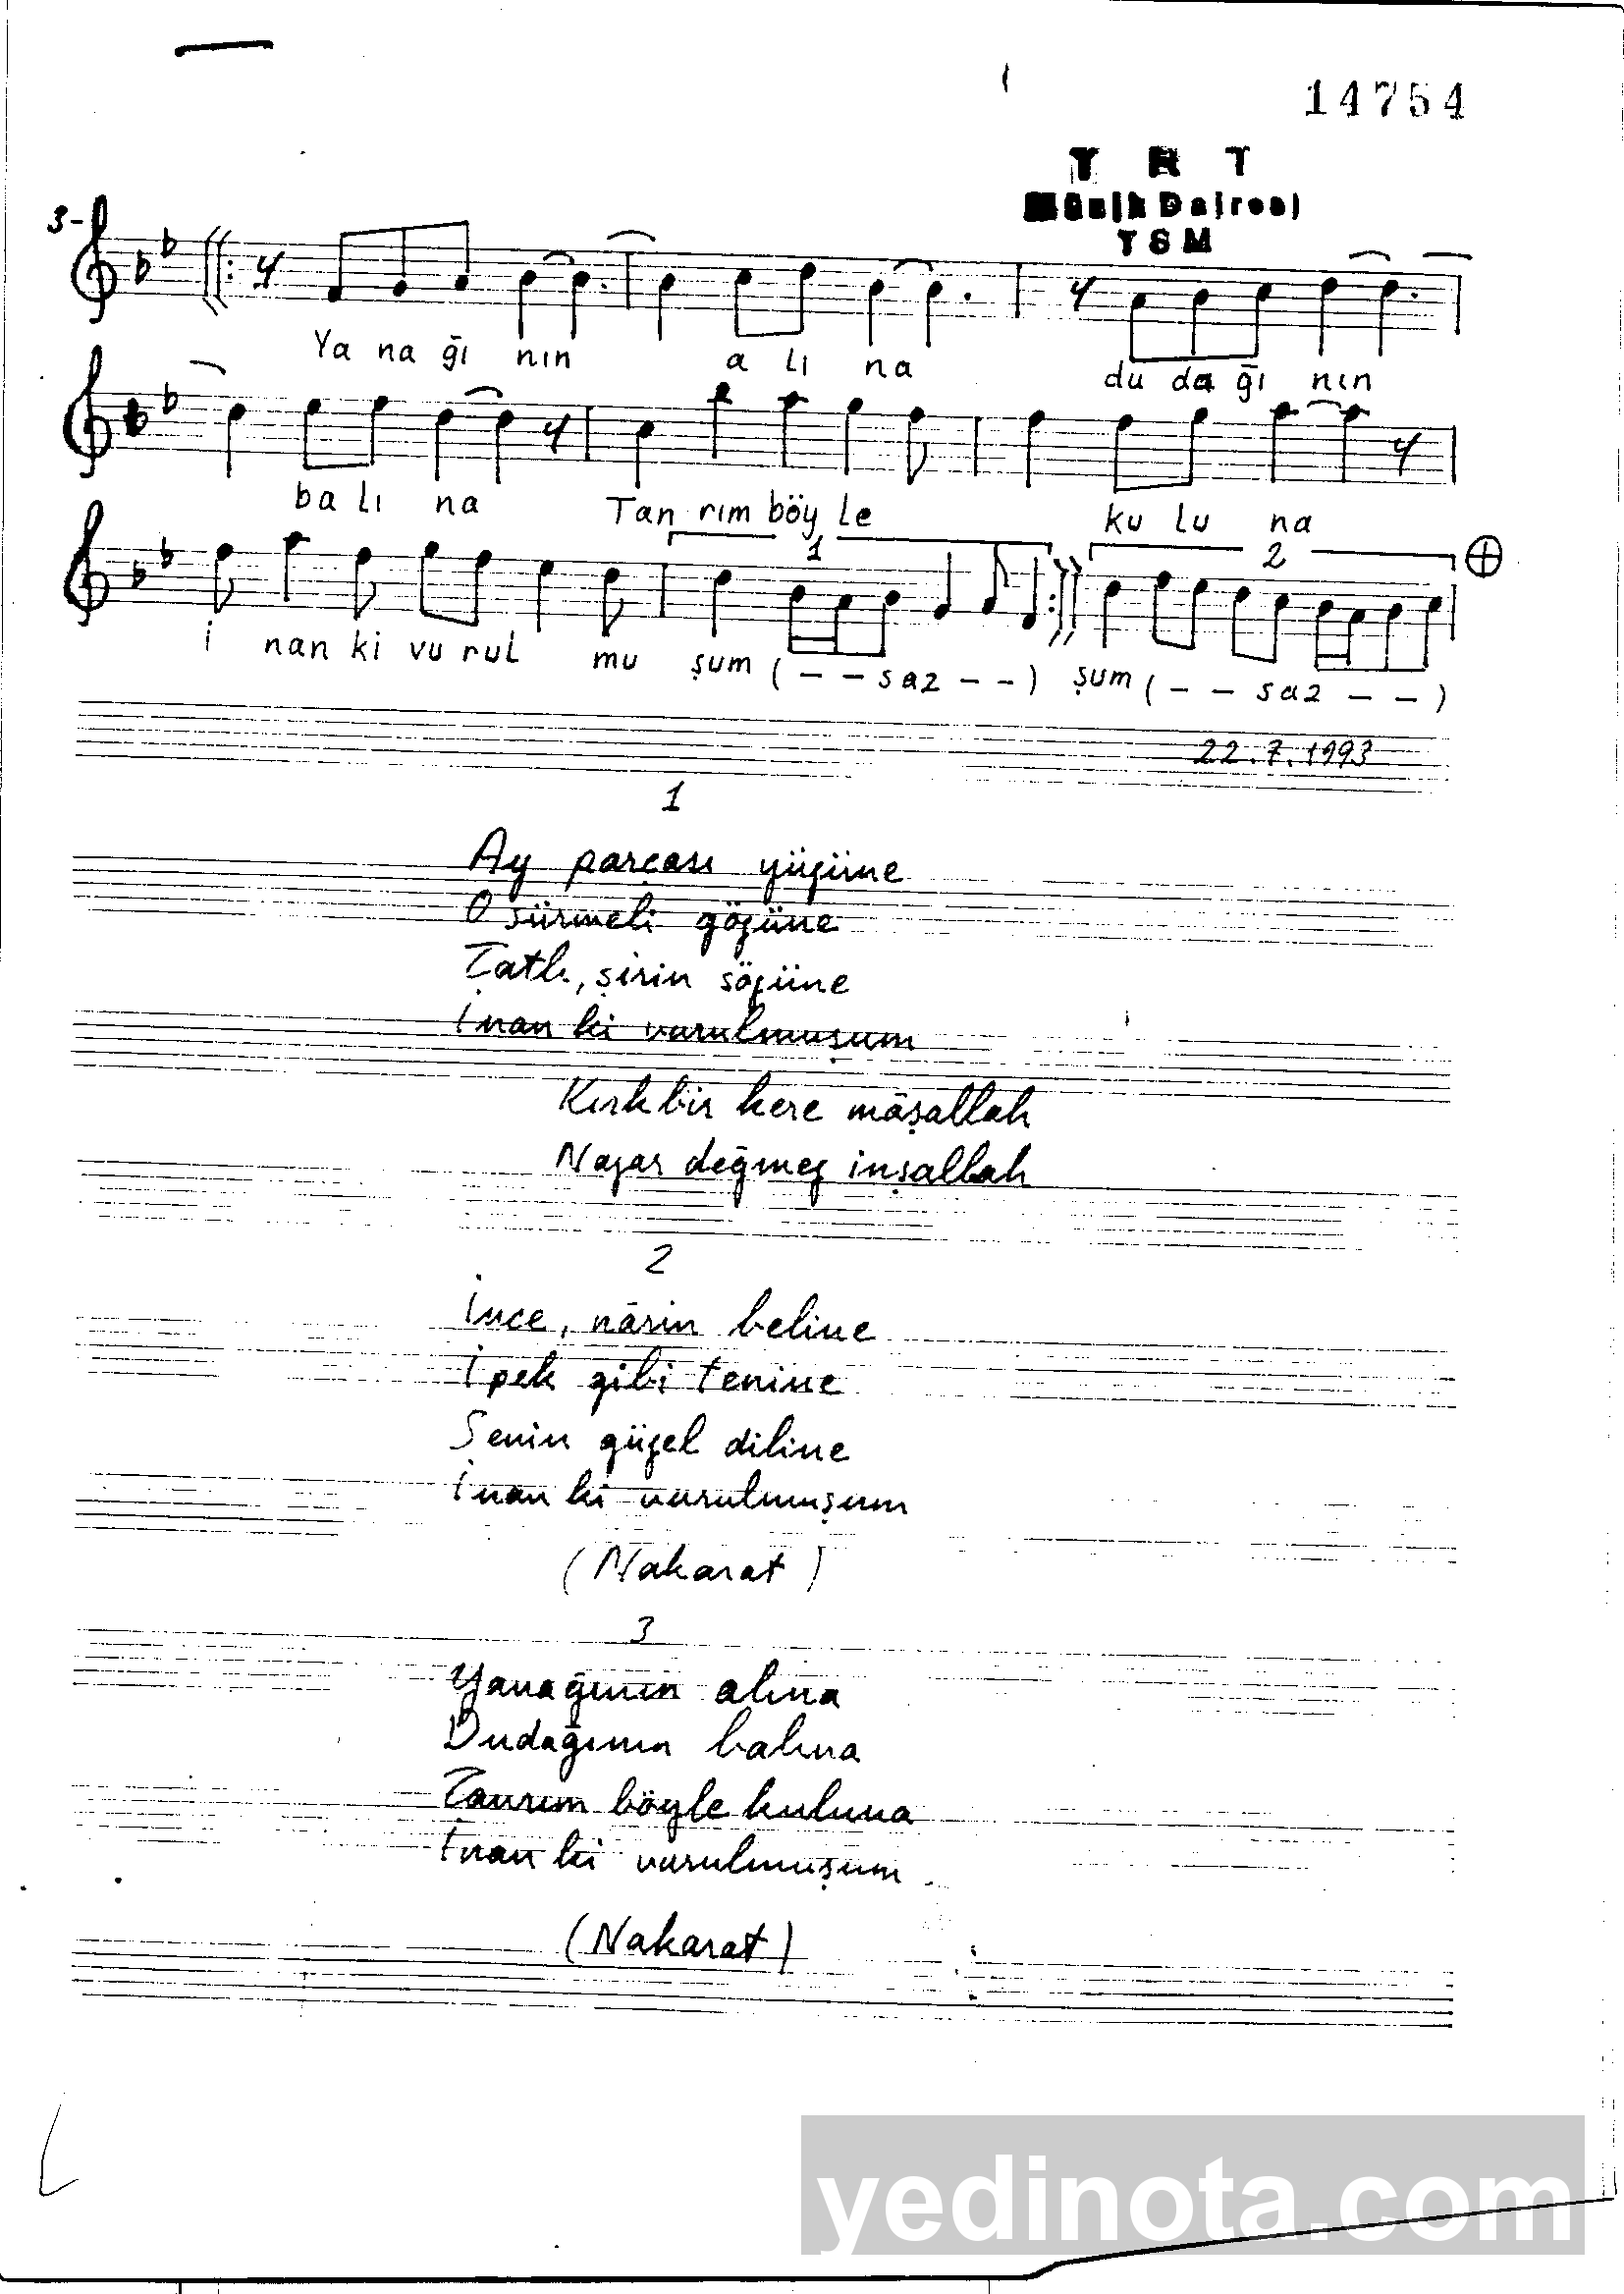 14754
T R T
Müzik Dairesi
TSM
3-
Ya na ğı nın a lı na du da ğı nın
ba lı na Tan rım böy le ku lu na
1 2
i nan ki vu rul mu şum ( - - saz - - ) şum ( - - saz - - )
22.7.1993
1
Ay parçası yüzüne
O sürmeli gözüne
Tatlı, şirin sözüne
İnan ki vurulmuşum
Kırkbir kere mâşallah
Nazar değmez inşallah
2
İnce, nârin beline
İpek gibi tenine
Senin güzel diline
İnan ki vurulmuşum
(Nakarat)
3
Yanağının alına
Dudağının balına
Tanrım böyle kuluna
İnan ki vurulmuşum
(Nakarat)
yedinota.com